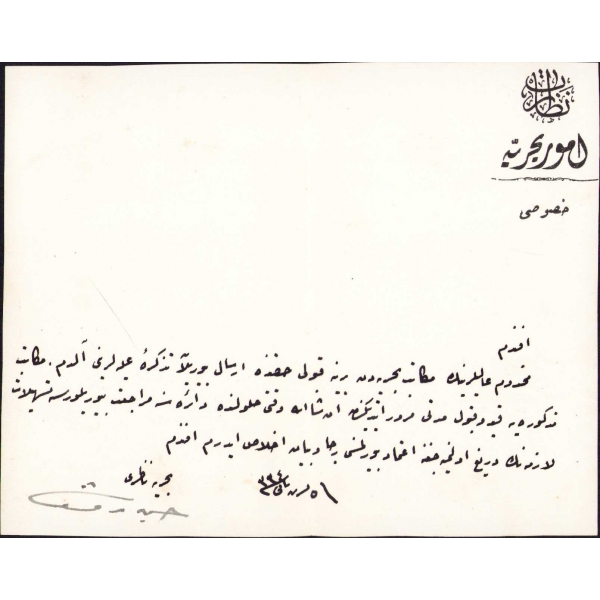 نظارت
امور بحریه
خصوصی
افندم
مخدوم عالیلرینك مكاتب بحریه‌دن برینه قبولی حقنده ارسال بیوریلان تذكرۀ علیه‌لرینی آلدم. مكاتب
مذكوره‌یه قید و قبول مدتی مرور ایتدیكندن ان شاء الله وقتی حلولنده دائره‌سنه مراجعت بیوریلورسه تسهیلات
لازمه‌نك دریغ اولنمیه‌جغنه اعتماد بیورلمسنی رجا و بیان اخلاص ایدرم افندم
بحریه ناظری